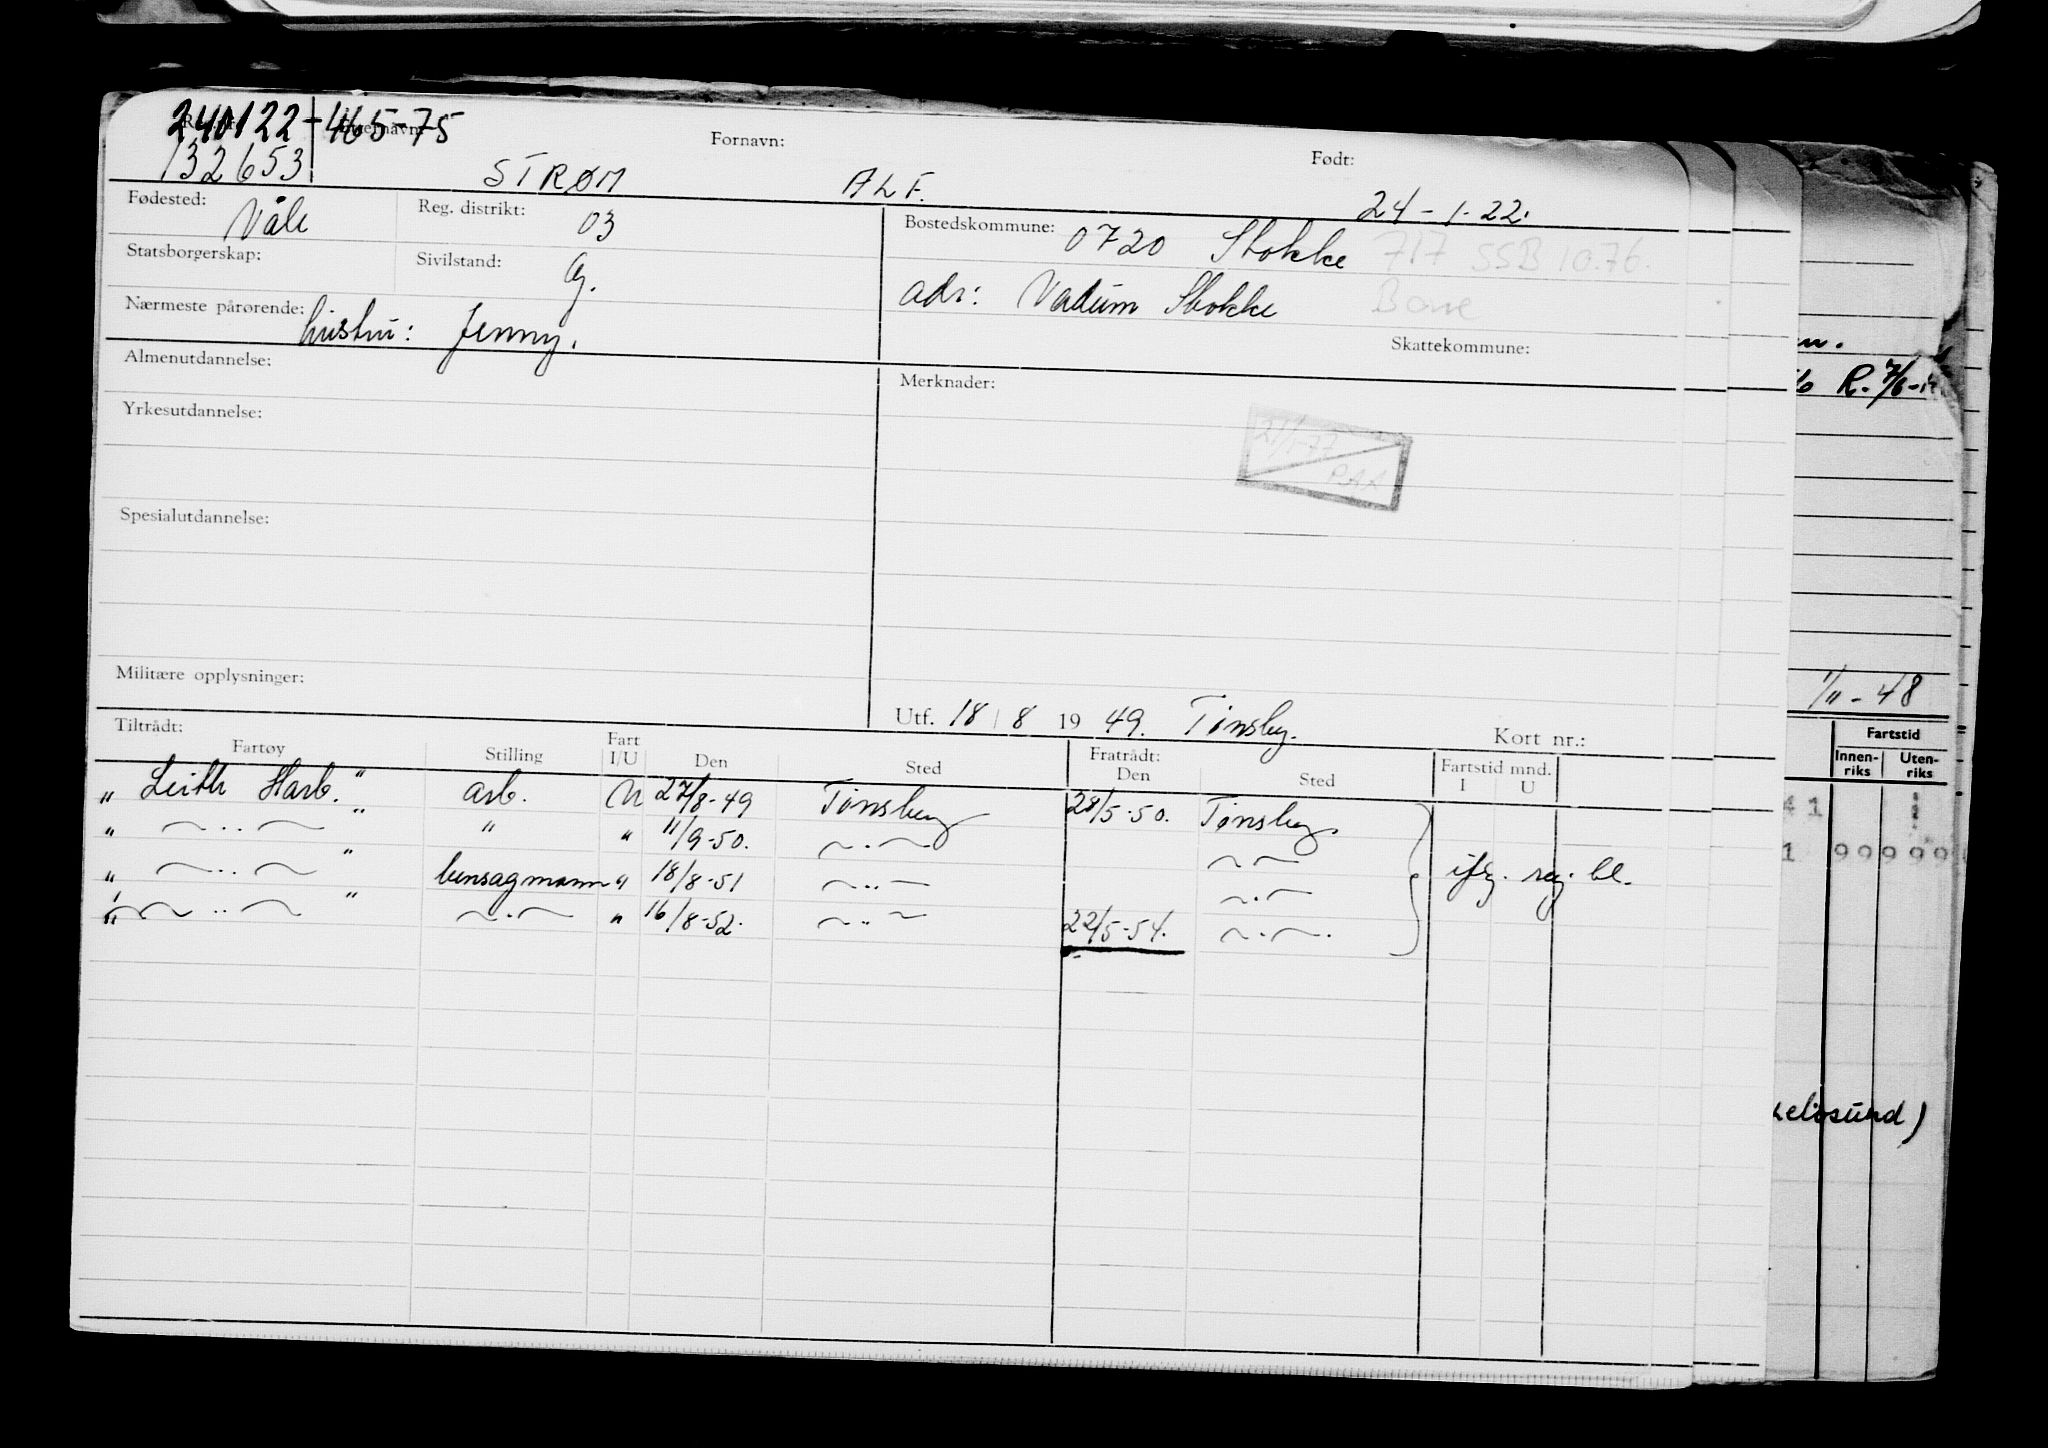 240122-465-75
Fornavn: Født:
132653 STRØM ALF. 24-1-22.
Fødested: Våle Reg. distrikt: 03 Bostedskommune: 0720 Stokke 717 SSB 10.76.
Statsborgerskap: Sivilstand: G. adr: Vadum Stokke
Nærmeste pårørende: hustru: Jenny. Skattekommune:
Almenutdannelse: Merknader:
Yrkesutdannelse: 21/1-77
Spesialutdannelse:
Militære opplysninger:
Utf. 18/8 1949. Tønsberg. Kort nr.:
Tiltrådt: Fratrådt:
Fartøy Stilling Fart I/U Den Sted Den Sted Fartstid mnd. I U
" Leith Harb. " arb. U 27/8-49 Tønsberg 28/5-50. Tønsberg
" —..— " " " 11/9-50. —.— —.—
" —..— " bensagmann " 18/8-51 —..— —.— iflg. reg. bl.
" —..— " —.— " 16/8-52. —..— 22/5-54. —.—.
R. 7/6-
1/11-48
Fartstid
Innen-riks Uten-riks
41
1 99999
elvsund)